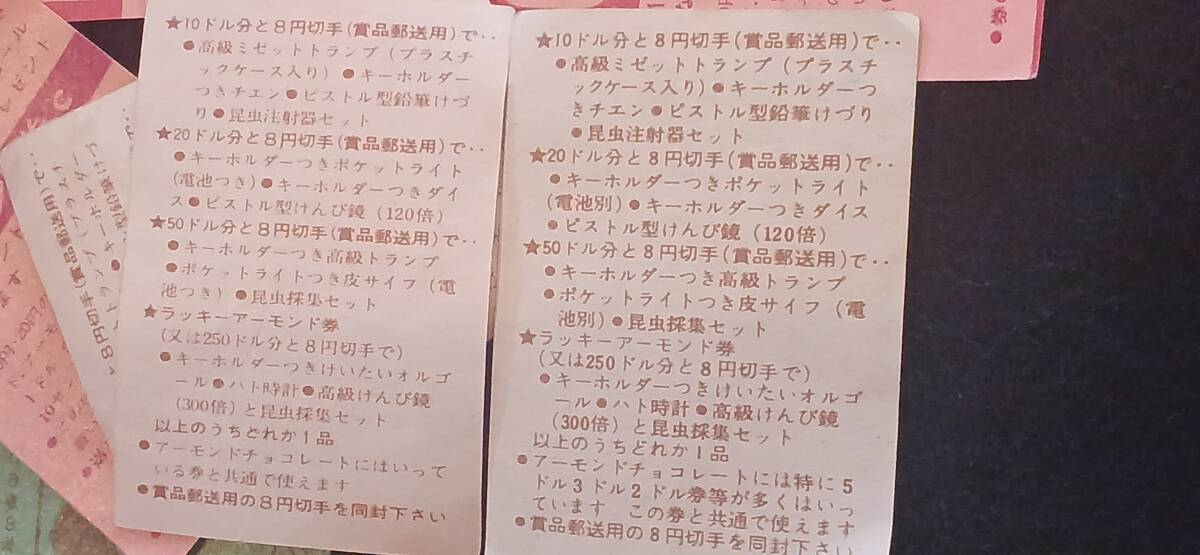 ★10ドル分と8円切手(賞品郵送用)で‥
●高級ミゼットトランプ(プラスチ
ックケース入り) ●キーホルダー
つきチエン●ピストル型鉛筆けづ
り●昆虫注射器セット
★20ドル分と8円切手(賞品郵送用)で‥
●キーホルダーつきポケットライト
(電池つき)●キーホルダーつきダイ
ス●ピストル型けんび鏡(120倍)
★50ドル分と8円切手(賞品郵送用)で‥
●キーホルダーつき高級トランプ
●ポケットライトつき皮サイフ(電
池つき) ●昆虫採集セット
★ラッキーアーモンド券
(又は250ドル分と8円切手で)
●キーホルダーつきけいたいオルゴ
ール●ハト時計●高級けんび鏡
(300倍)と昆虫採集セット
以上のうちどれか1品
●アーモンドチョコレートにはいって
いる券と共通で使えます
●賞品郵送用の8円切手を同封下さい
★10ドル分と8円切手(賞品郵送用)で‥
●高級ミゼットトランプ(プラスチ
ックケース入り)●キーホルダーつ
きチエン●ピストル型鉛筆けづり
●昆虫注射器セット
★20ドル分と8円切手(賞品郵送用)で‥
●キーホルダーつきポケットライト
(電池別)●キーホルダーつきダイス
●ピストル型けんび鏡(120倍)
★50ドル分と8円切手(賞品郵送用)で‥
●キーホルダーつき高級トランプ
●ポケットライトつき皮サイフ(電
池別)●昆虫採集セット
★ラッキーアーモンド券
(又は250ドル分と8円切手で)
●キーホルダーつきけいたいオルゴ
ール●ハト時計●高級けんび鏡
(300倍)と昆虫採集セット
以上のうちどれか1品
●アーモンドチョコレートには特に5
ドル3ドル2ドル券等が多くはいっ
ています この券と共通で使えます
●賞品郵送用の8円切手を同封下さい
8円切手(賞品郵送用)で‥